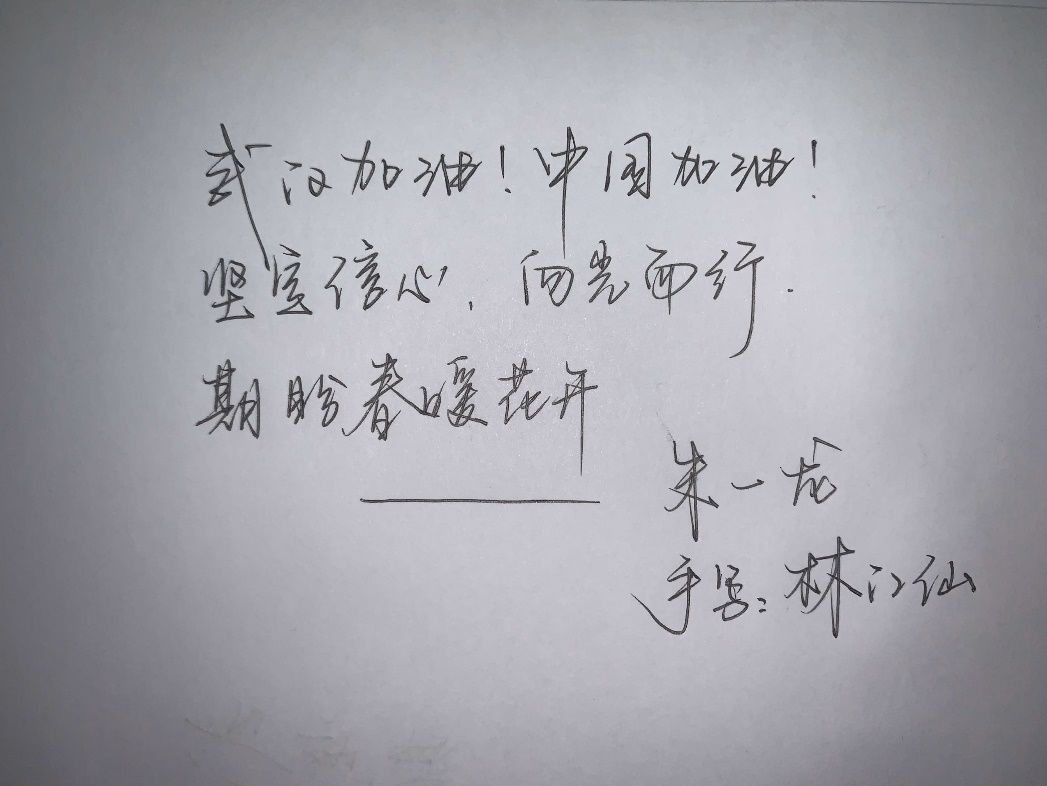 武汉加油！中国加油！
坚定信心，向光而行.
期盼春暖花开
朱一龙
手写：林江仙